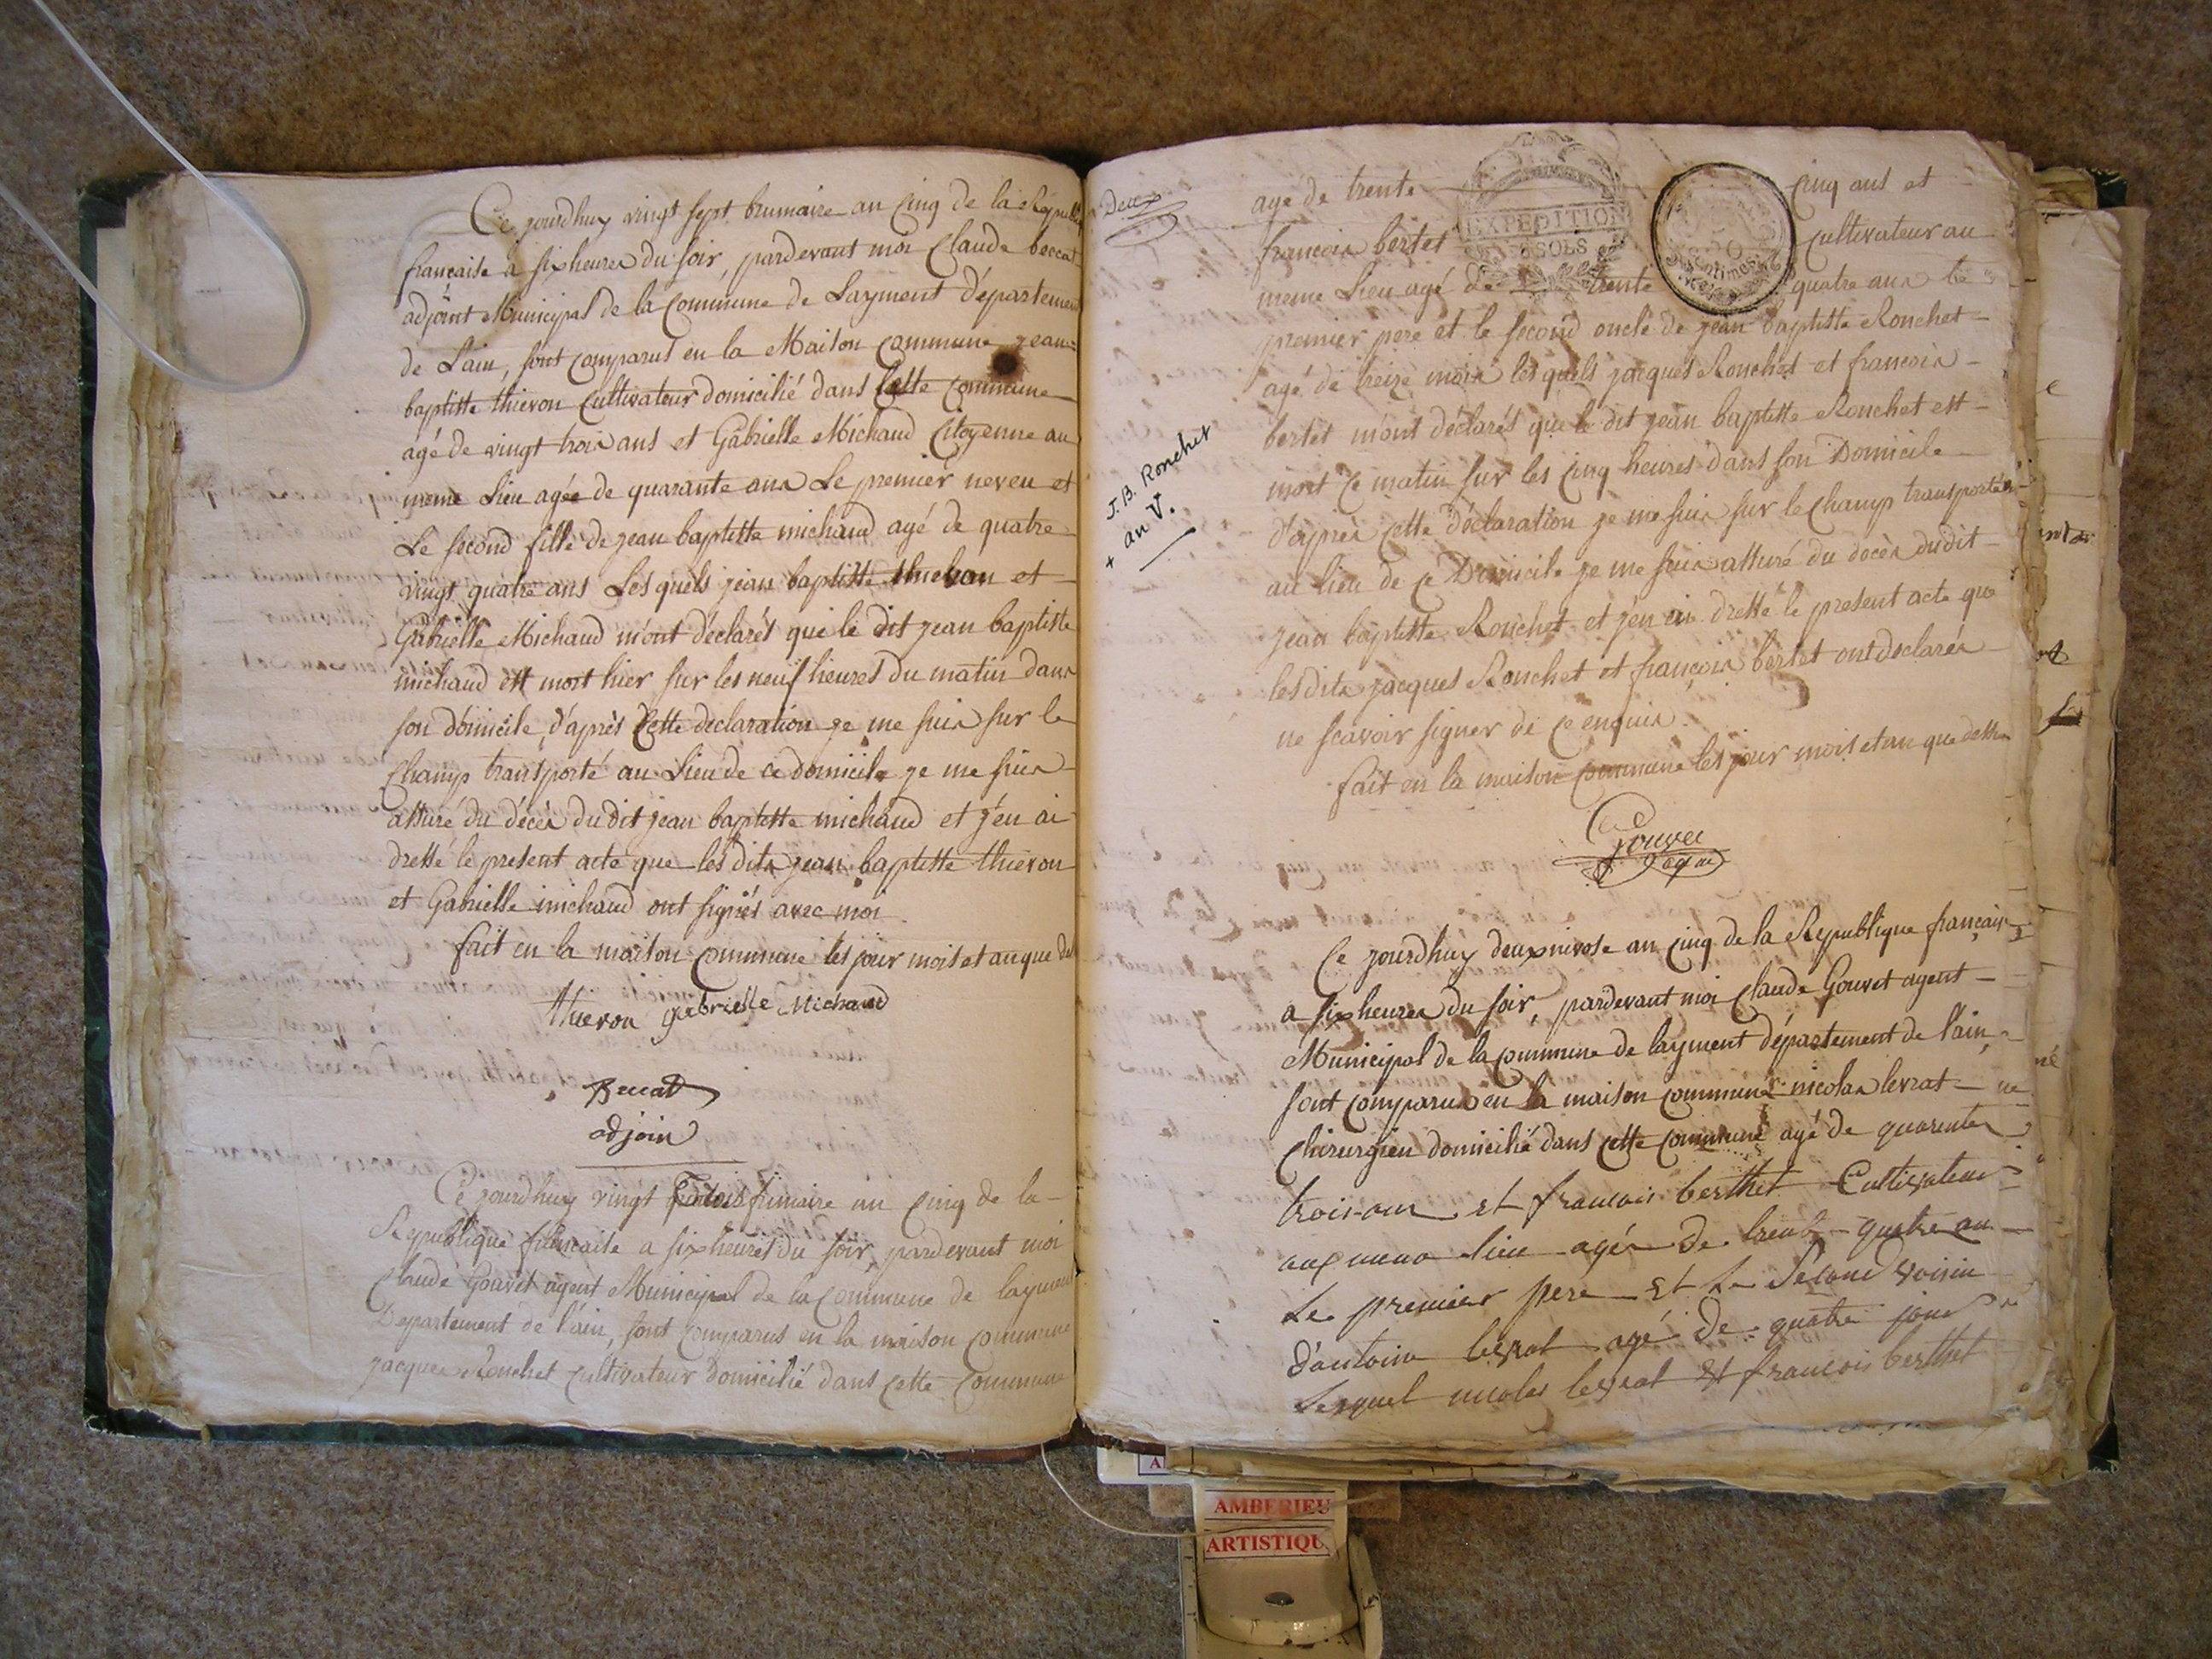 Ce jourdhuy vingt sept brumaire an cinq de la Republi
française a six heures du soir, pardevant moi Claude beccat
adjoint Municipal de la Commune de Layment département
de Lain, sont comparus en la Maison commune jean
baptiste thievon cultivateur domicilié dans cette commune
agé de vingt trois ans et Gabrielle Michaud Citoyenne au
meme Lieu agée de quarante ans Le premier neveu et
Le second fille de jean baptiste michaud agé de quatre
vingt quatre ans Les quels jean baptiste thievon et
Gabrielle Michaud m'ont déclarés que le dit jean baptiste
michaud est mort hier sur les neuf heures du matin dans
son domicile, d'après cette declaration je me suis sur le
champ transporté au Lieu de ce domicile je me suis
assuré du décès du dit jean baptiste michaud et j'en ai
dressé le present acte que les dits jean baptiste thievon
et Gabrielle michaud ont signés avec moi
fait en la maison commune les jour mois et an que des
thievon gabrielle Michaud
Beccat
adjoin
Ce jourdhuy vingt trois frimaire an cinq de la
Republique française a six heures du soir, pardevant moi
Claude Gouvet agent Municipal de la Commune de layment
Departement de l'ain, sont comparus en la maison commune
jacques Ronchet cultivateur domicilié dans cette commune
Deux
agé de trente cinq ans et
francois bertet cultivateur au
meme Lieu agé de trente quatre ans le
EXPEDITION
SOLS
50
centimes
premier pere et le second oncle de jean baptiste Ronchet
agé de treize mois les quels jacques Ronchet et francois
bertet m'ont déclarés que le dit jean baptiste Ronchet est
mort ce matin sur les cinq heures dans son Domicile
J.B. Ronchet
+ an V.
d'après cette déclaration je me suis sur le champ transporté
au lieu de ce Domicile je me suis assuré du decès dudit
jean baptiste Ronchet et j'en ai dressé le present acte que
lesdits jacques Ronchet et françois bertet ont declarés
ne scavoir signer de ce enquis.
fait en la maison commune les jour mois et an que dessus
Gouvet
agent
Ce jourdhuy deux nivose an cinq de la Republique français
a six heures du soir, pardevant moi Claude Gouvet agent
Municipal de la commune de layment département de l'ain,
sont comparus en la maison commune nicolas levrat
chirurgien domicilié dans cette commune agé de quarente
trois ans et francois berthet Cultivateur
au meme lieu agés de trente quatre an
Le premier pere et Le Second voisin
d'antoine levrat agé de quatre jour
Lesquel nicolas levrat et francois berthet
AMBERIEU
ARTISTIQU